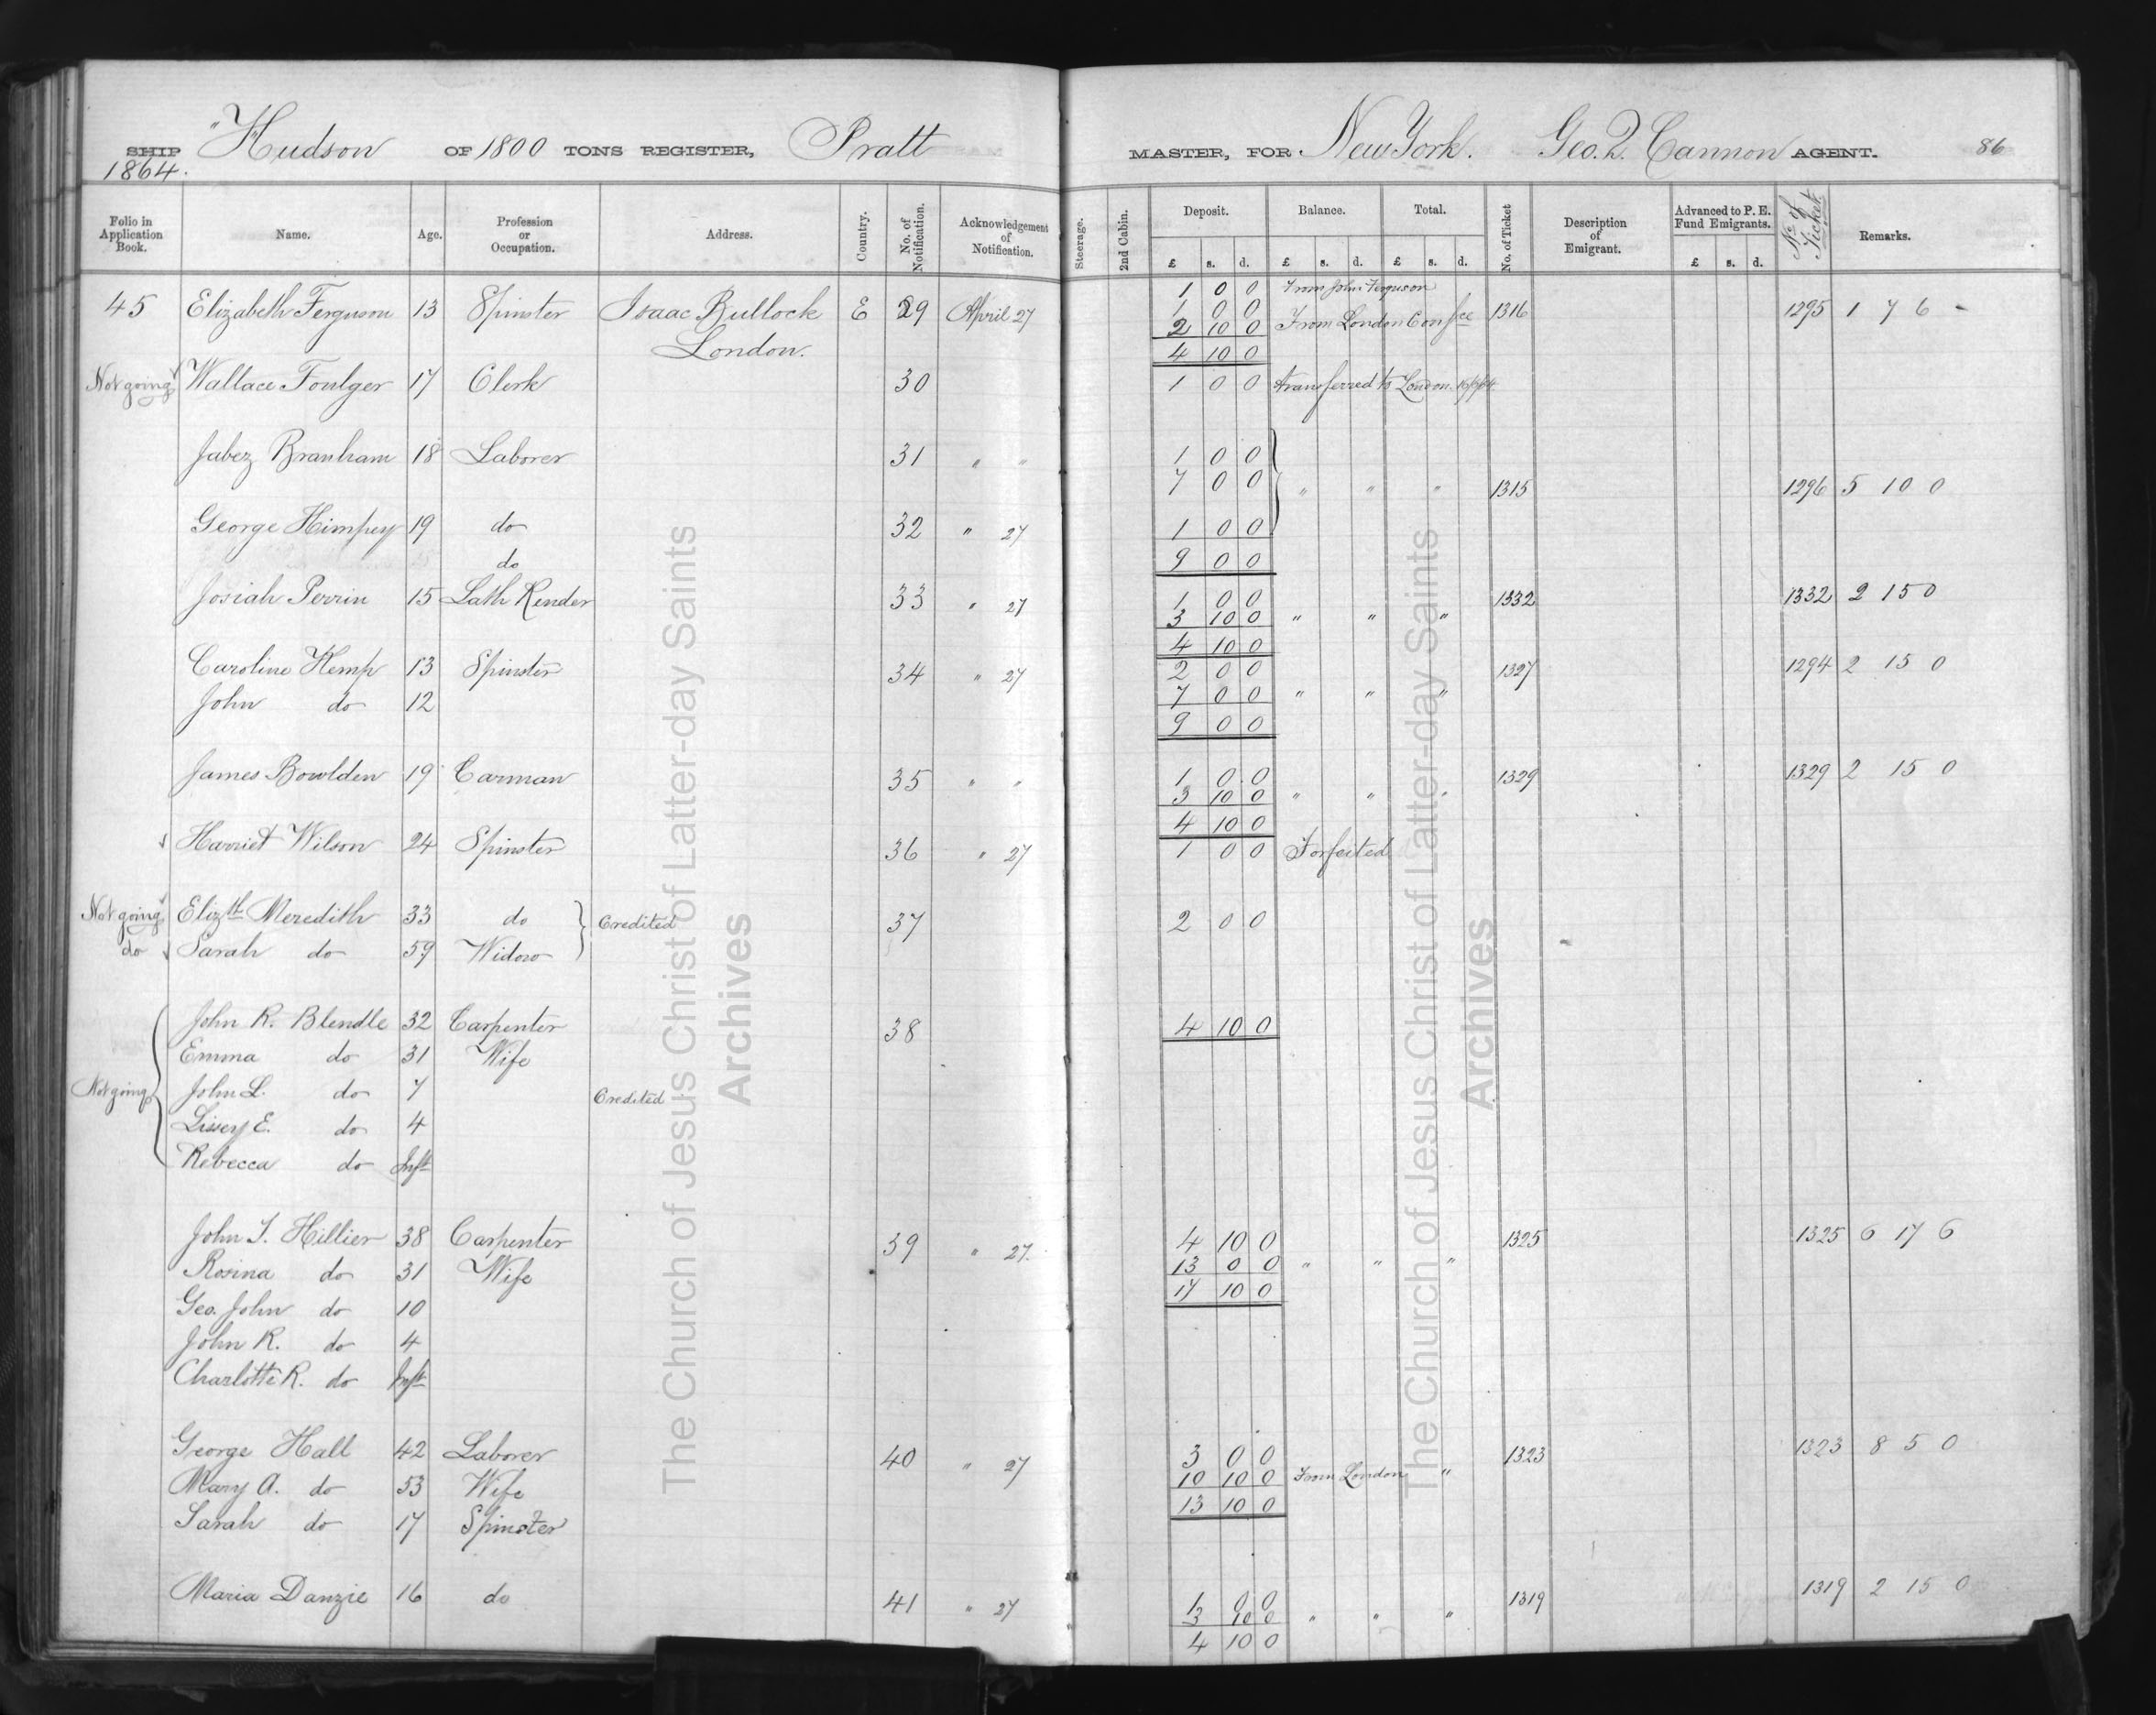 SHIP "Hudson OF 1800 TONS REGISTER, Pratt MASTER, FOR New York. Geo. Q. Cannon AGENT. 86
1864.
Folio in Application Book. Name. Age. Profession or Occupation. Address. Country. No. of Notification. Acknowledgement of Notification. Steerage. 2nd Cabin. Deposit. Balance. Total. No. of Ticket Description of Emigrant. Advanced to P. E. Fund Emigrants. No of Ticket Remarks.
£ s. d. £ s. d. £ s. d. £ s. d.
1 0 0 From John Ferguson
45 Elizabeth Ferguson 13 Spinster Isaac Bullock E 29 April 27 1 0 0 1316 1295 1 7 6 -
2 10 0 From London Confce
London. 4 10 0
Not going Wallace Foulger 17 Clerk 30 1 0 0 transferred to London
Jabez Branham 18 Laborer 31 " " 1 0 0
7 0 0 " " " 1315 1296 5 10 0
George Himpey 19 do 32 " 27 1 0 0
do 9 0 0
Josiah Perrin 15 Lath Render 33 " 27 1 0 0 1332 1332 2 15 0
3 10 0 " " "
4 10 0
Caroline Kemp 13 Spinster 34 " 27 2 0 0 1327 1294 2 15 0
John do 12 7 0 0 " " "
9 0 0
James Bowlden 19 Carman 35 " " 1 0 0 1329 1329 2 15 0
3 10 0 " " "
4 10 0
Harriet Wilson 24 Spinster 36 " 27 1 0 0 Forfeited
Not going Elizth Meredith 33 do Credited 37 2 0 0
do Sarah do 59 Widow
John R. Blendle 32 Carpenter 38 4 10 0
Emma do 31 Wife
Not going John L. do 7 Credited
Lissey E. do 4
Rebecca do Inft
John T. Hillier 38 Carpenter 39 " 27. 4 10 0 1325 1325 6 17 6
Rosina do 31 Wife 13 0 0 " " "
17 10 0
Geo. John do 10
John R. do 4
Charlotte R. do Inft
George Hall 42 Laborer 40 " 27 3 0 0 1323 1323 8 5 0
Mary A. do 53 Wife 10 10 0 From London "
13 10 0
Sarah do 17 Spinster
Maria Danzie 16 do 41 " 27 1 0 0 1319 1319 2 15 0
3 10 0 " " "
4 10 0
The Church of Jesus Christ of Latter-day Saints
Archives
The Church of Jesus Christ of Latter-day Saints
Archives